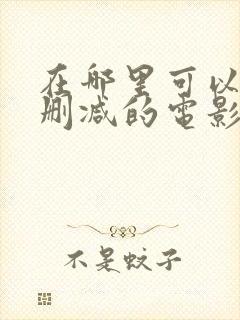 在哪里可以
删减的电影
不是蚊子